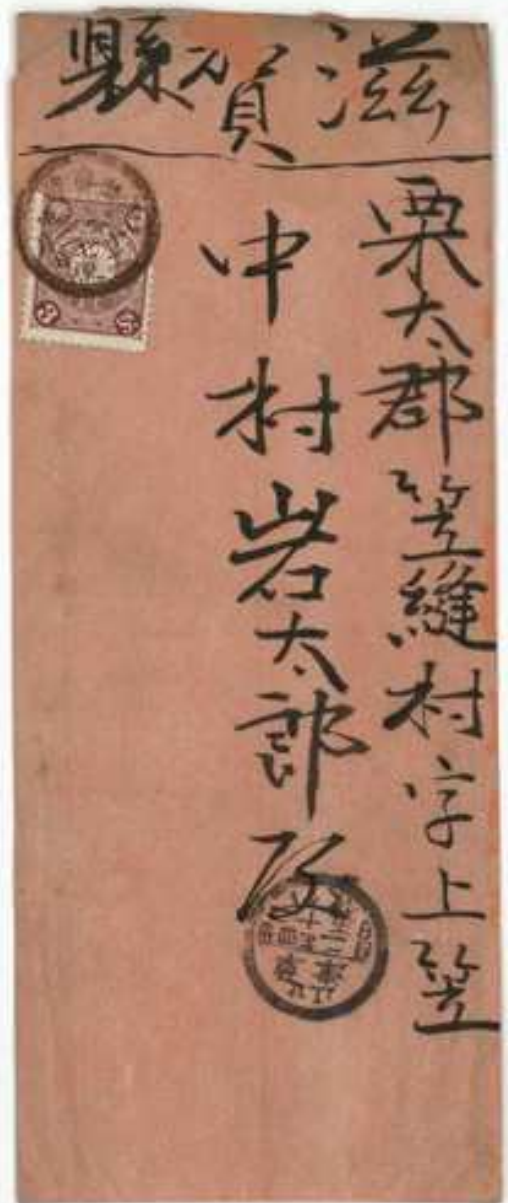 滋賀縣
栗太郡笠縫村字上笠
中村岩太郎殿